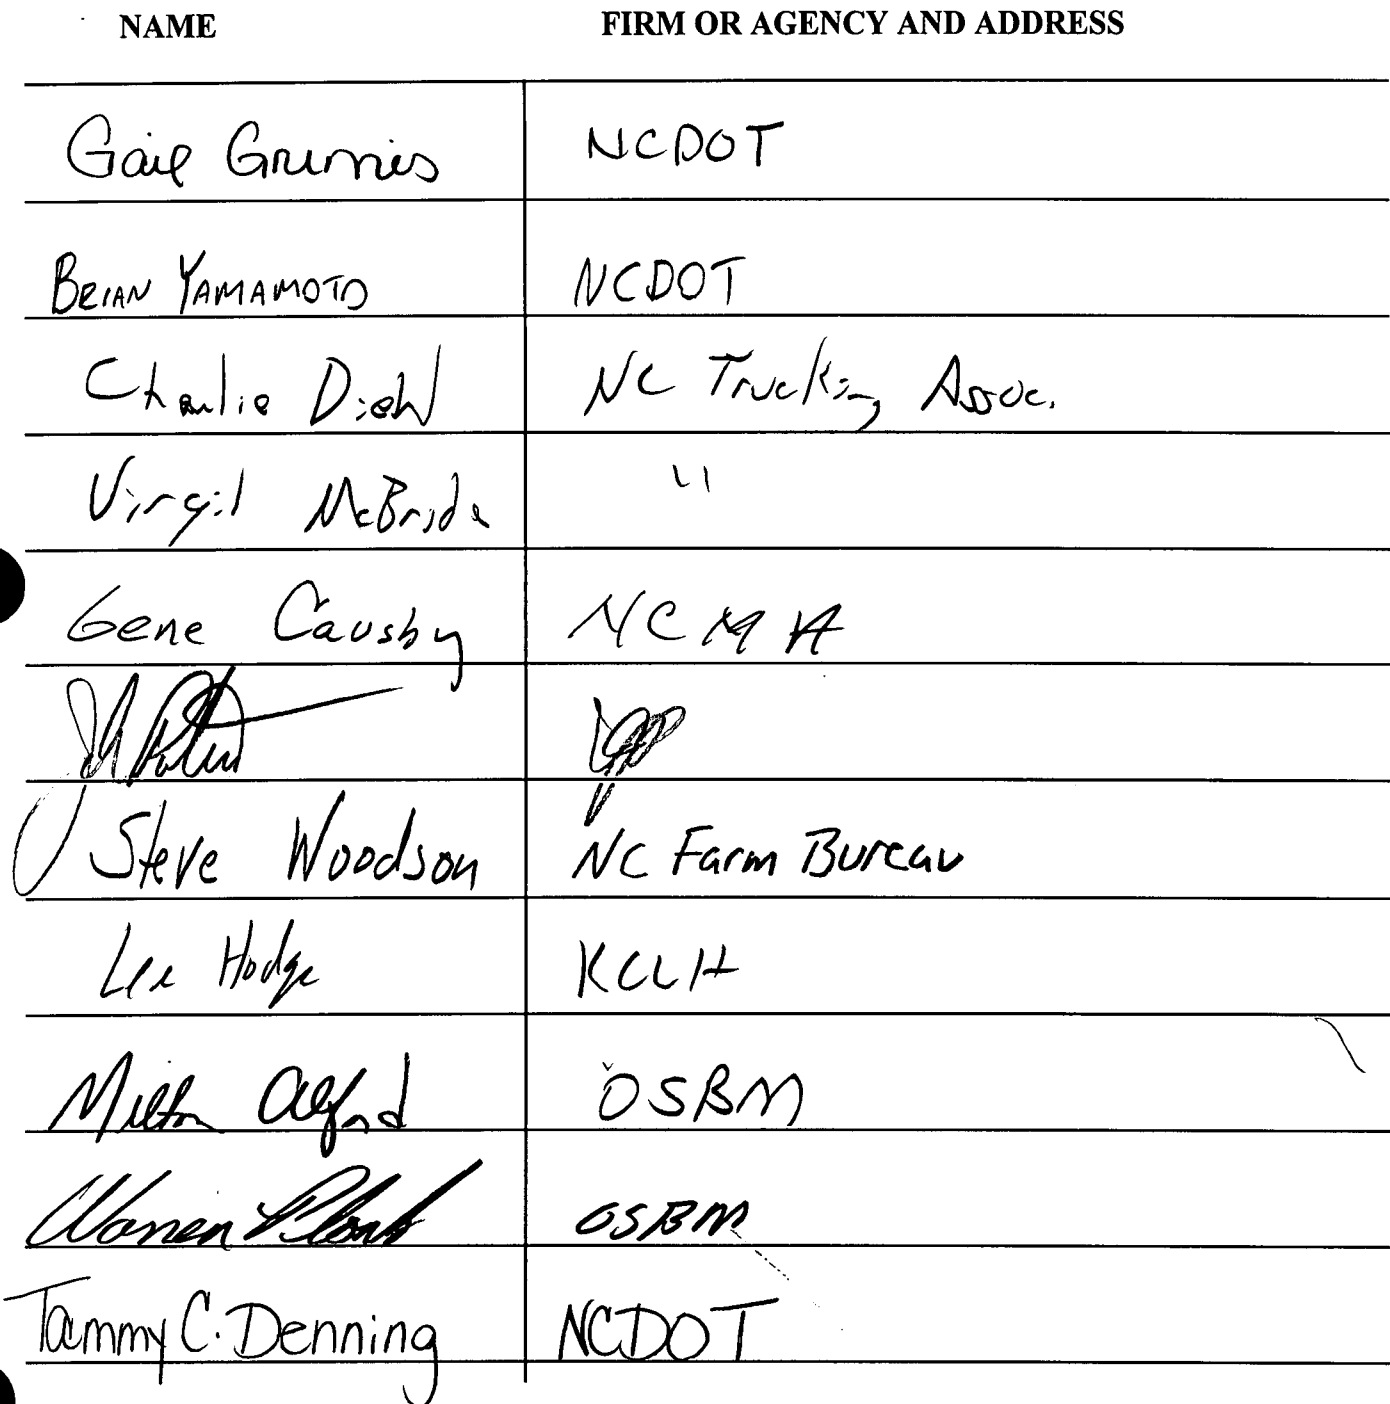 NAME FIRM OR AGENCY AND ADDRESS
Gail Grimes NCDOT
BRIAN YAMAMOTO NCDOT
Charlie Diehl NC Trucking Assoc.
Virgil McBride "
Gene Causby NCMA
Steve Woodson NC Farm Bureau
Lee Hodge KCLH
Milton Alford OSBM
Warren Plonk OSBM
Tammy C. Denning NCDOT